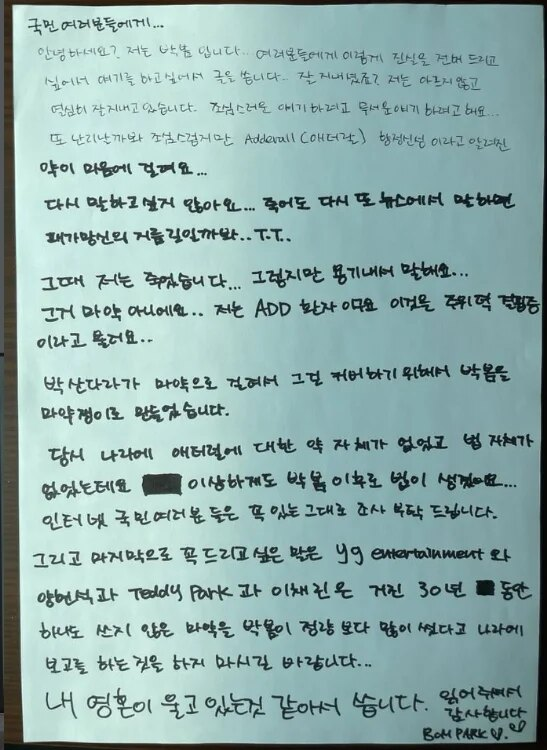 국민 여러분들에게...
안녕하세요? 저는 박봄 입니다.. 여러분들에게 이렇게 진실을 전해 드리고
싶어서 얘기를 하고싶어서 글을 씁니다.. 잘 지내셨죠? 저는 아프지 않고
열심히 잘지내고 있습니다. 조심스러운 얘기하려고 무서운얘기 하려고해요...
또 난리날까봐 조심스럽지만 Adderall (애더럴) 향정신성 이라고 알려진
약이 마음에 걸려요...
다시 말하고싶지 않아요... 죽어도 다시 또 뉴스에서 말하면
패가망신의 지름길일까봐..T.T..
그때 저는 죽었습니다... 그렇지만 용기내서 말해요...
그거 마약 아니에요.. 저는 ADD 환자 이구요 이것을 주위력 결핍증
이라고 불러요..
박산다라가 마약으로 걸려서 그걸 커버하기위해서 박봄을
마약쟁이로 만들었습니다.
당시 나라에 애터럴에 대한 약 자체가 없었고 법 자체가
없었는데요 이상하게도 박봄 이후로 법이 생겼어요...
인터넷 국민여러분 들은 꼭 있는그대로 조사 부탁 드립니다.
그리고 마지막으로 꼭드리고 싶은 말은 yg entertainment 와
양현석과 Teddy Park 과 이채린은 거진 30년 동안
하나도 쓰지 않은 마약을 박봄이 정량 보다 많이 썼다고 나라에
보고를 하는것을 하지 마시길 바랍니다...
내 영혼이 울고 있는것 같아서 씁니다.
읽어주셔서
감사합니다
BOM PARK ♡.